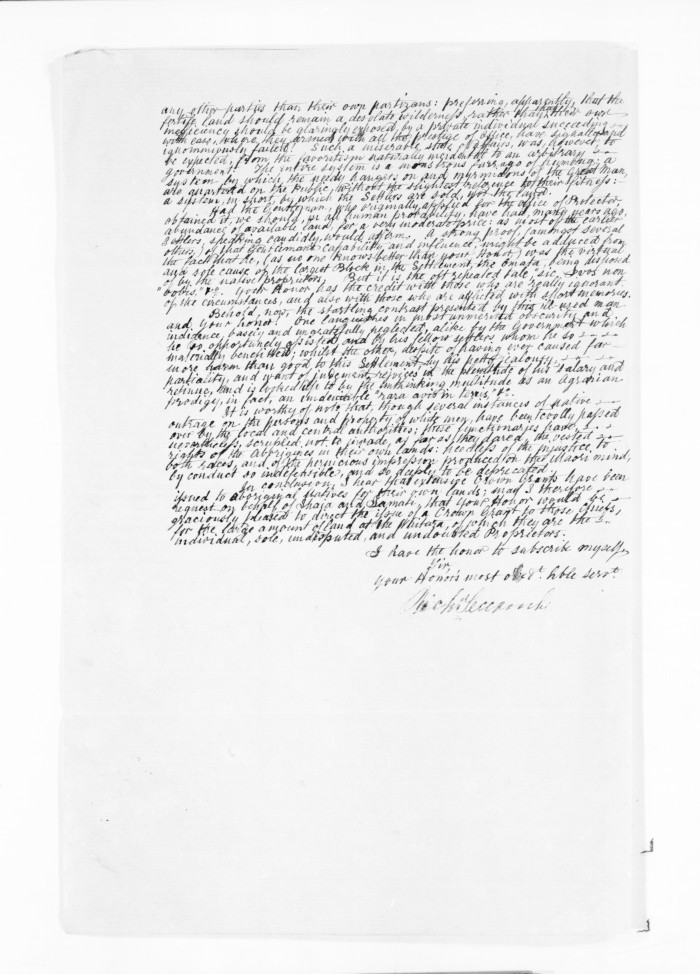 any other parties than their own partizans: preferring, apparently, that the
fertile land should remain a desolate wilderness, rather than that their own
inefficiency should be glaringly exposed by a private individual succeeding
with ease, where they armed with all the prestige of office, have signally and
ignominiously failed. Such a miserable state of affairs, was, however, to
be expected, from the favoritism naturally incidental to an arbitrary
Government. The entire system is a monstrous farrago of humbug; a
system by which the needy hangers on and myrmidons of the Great Man,
are quartered on the Public, without the slightest reference to their fitness:
a system, in short, by which the Settlers are sold, not the land.
Had the Gentleman, who originally applied for the office of Protector,
obtained it, we should, in all human probability, have had, many years ago,
abundance of available land, for a very moderate price: as most of the earlier
Settlers, speaking candidly, would affirm. A strong proof, (amongst several
others,) of that Gentleman's capability and influence, might be adduced from
the fact that he, (as no one knows better than your Honor,) was the virtual
and sole cause of the largest Block in the Settlement, the Omata, being disposed
of by the native proprietors. But it is the oft repeated tale, "sic vos non
vobis" &c. Your Honor has the credit with those who are really ignorant
of the circumstances, and also with those who are afflicted with short memories.
Behold, now, the startling contrast presented by this ill used man
and Your honor! One languishes in most unmerited obscurity and
indigence, basely and ungratefully neglected, alike by the Government which
he so opportunely assisted and by his fellow settlers whom he so
materially benefitted; whilst the other, despite of having ever caused far
more harm than good to this Settlement, by his petty jealousy,
partiality, and want of judgement, rejoices in the plenitude of his salary and
retinue, and is looked up to by the unthinking multitude as an agrarian
prodigy, in fact, an undeniable "rara avis in terris," &c.
It is worthy of note that, though several instances of native
outrage on the persons and property of white men, have been coolly passed
over by the local and central authorities; these functionaries have,
nevertheless, scrupled not to invade, as far as they dared, the vested
rights of the Aborigines in their own lands: heedless of the injustice to
both races, and of the pernicious impression produced on the Maori mind,
by conduct so indefensible, and so deeply to be deprecated.
In conclusion, I hear that extensive Crown Grants have been
issued to aboriginal natives for their own lands; may I therefore
request on behalf of Ihaia and Tamati, that Your Honor would be
graciously pleased to direct the issue of a Crown Grant to those Chiefs,
for the large amount of land at the Waitara, of which they are the
individual, sole, undisputed, and undoubted Proprietors.
I have the honor to subscribe myself
Sir
Your Honor's most obedt. hble servt.